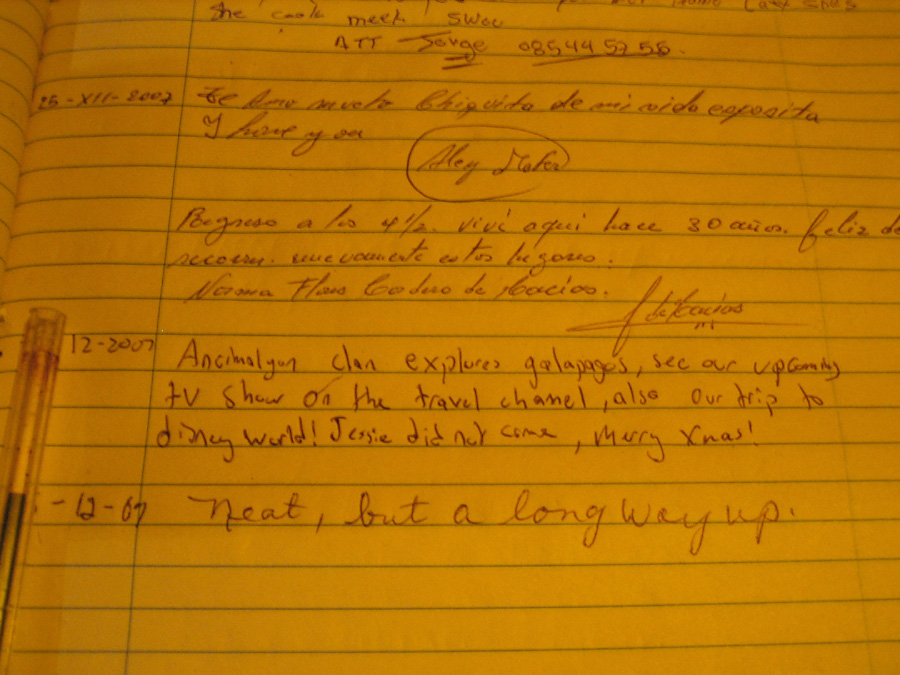 the cook meet
ATT Jorge 085445756.
25-XII-2007 Te Amo mucho Chiquita de mi vida esposita
I love you
Alex
Regreso a los 4 1/2. viví aqui hace 30 años. feliz de
recorrer nuevamente estos lugares.
Norma Flores Cordero de Macías.
de Macías
12-2007 Ancimalyon clan explores galapagos, see our upcoming
tv show on the travel channel, also our trip to
disney world! Jessie did not come, Merry Xmas!
-12-07 Neat, but a long way up.